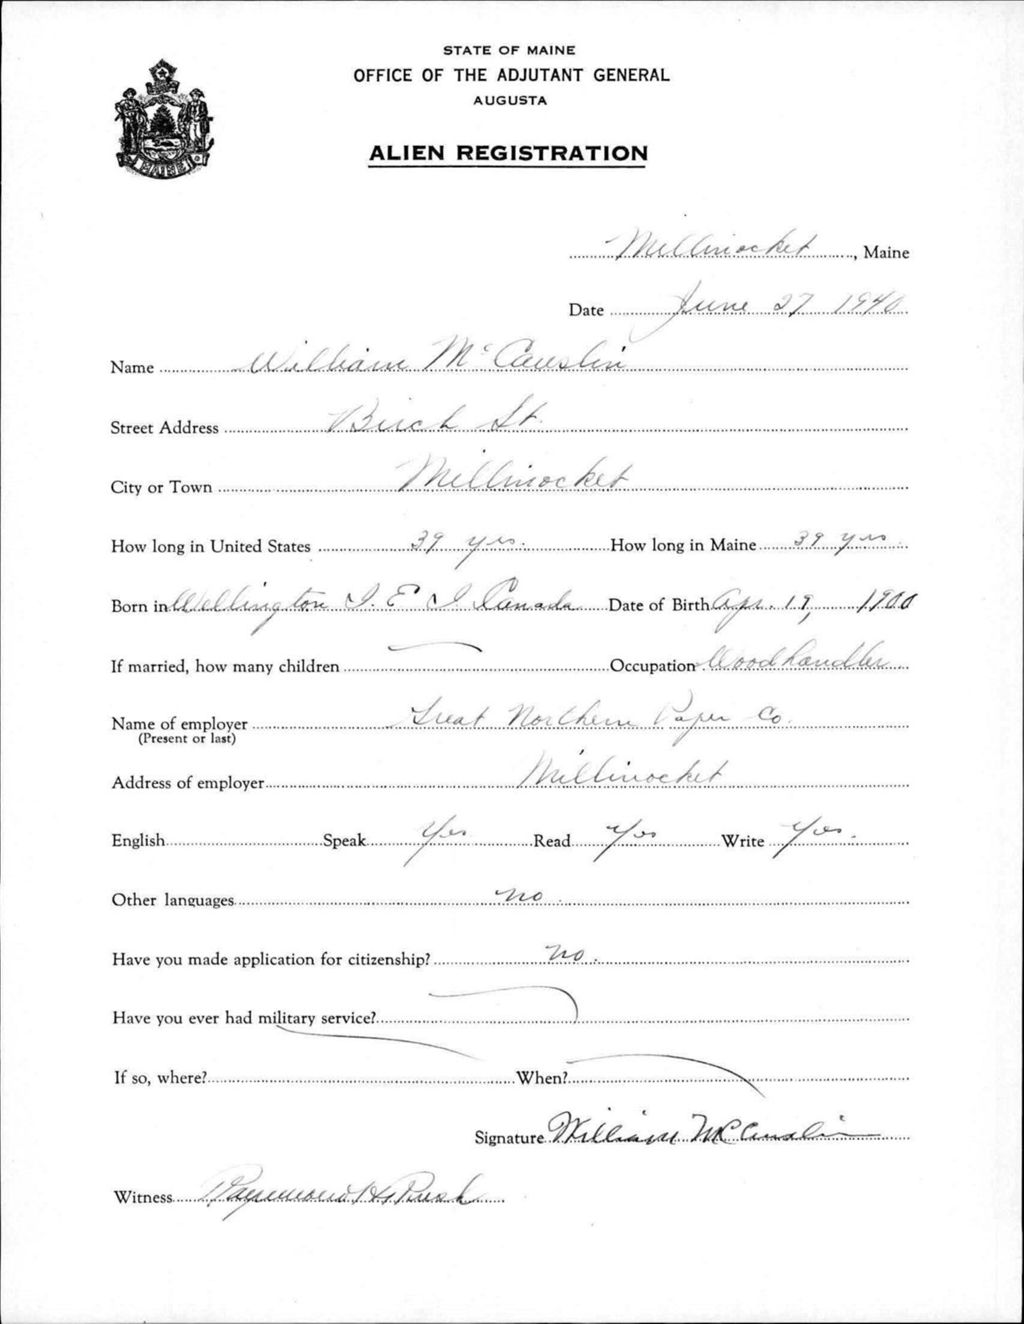 STATE OF MAINE
OFFICE OF THE ADJUTANT GENERAL
AUGUSTA
ALIEN REGISTRATION
MAINE
Millinocket, Maine
Date June 27 1940
Name William McCauslin
Street Address Birch St.
City or Town Millinocket
How long in United States 39 yrs. How long in Maine 39 yrs.
Born in Wellington P. E. I Canada Date of Birth Apr. 19, 1900
If married, how many children Occupation Woodhandler
Name of employer Great Northern Paper Co.
(Present or last)
Address of employer Millinocket
English Speak Yes Read Yes Write Yes.
Other languages no.
Have you made application for citizenship? no.
Have you ever had military service?
If so, where? When?
Signature William McCauslin
Witness Raymond H. Rush